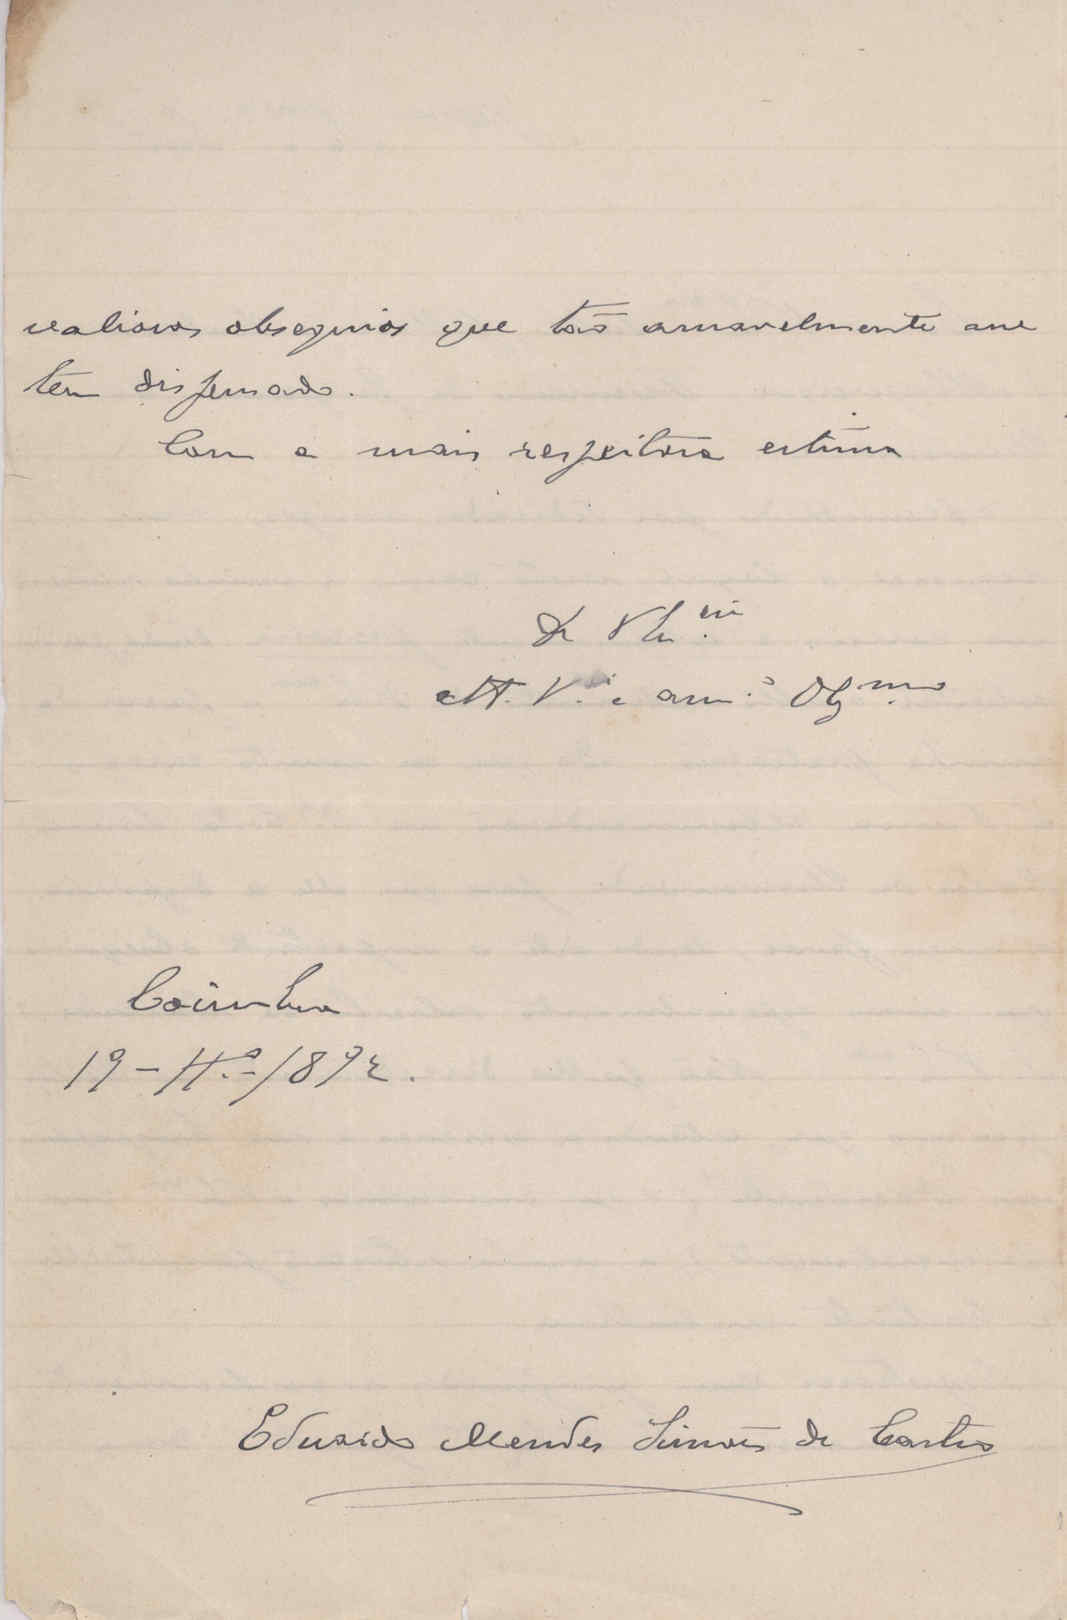 valiosos obsequios que tão amavelmente me
tem dispensado.
Com a mais respeitosa estima
De V. Ex.cia
Att. V.or e am.o Obg.mo
Coimbra
19-11.o-/892.
Eduardo Mendes Simões de Castro